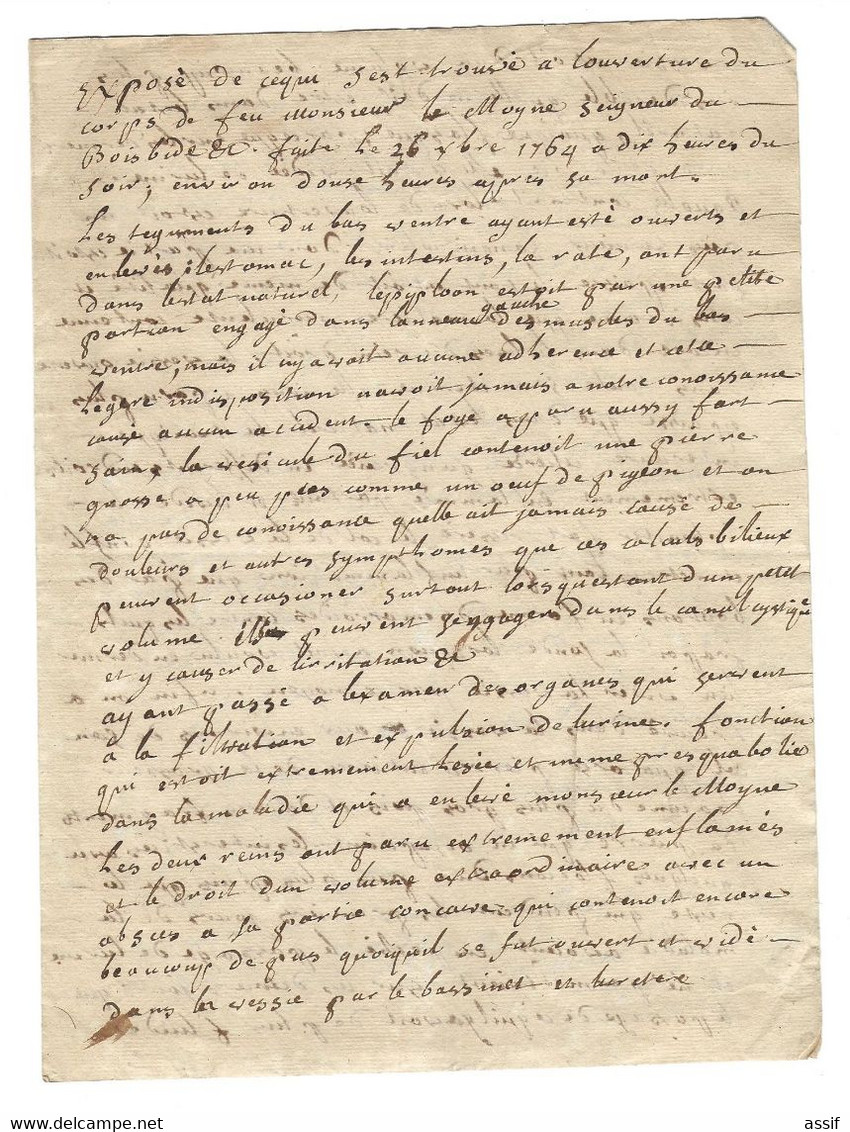 Exposé de cequi s'est trouvé a louverture du
corps de feu Monsieur le Moyne Seigneur du
Boisbide &c. faite le 26 xbre 1764 a dix heures du
Soir, environ douse heures apres sa mort.
Les teguments du bas ventre ayant esté ouverts et
enlevés, lestomac, les intestins, la rate, ont paru
dans lestat naturel, lepiploon estoit par une petite
portion engagé dans lanneau gauche des muscles du bas
ventre, mais il nyavoit aucune adherence et cete
legere indisposition navoit jamais a notre conoissance
causé aucun accident. le foye a paru aussy fort
sain, la vesicule du fiel contenoit une pierre
grosse a peu pres comme un oeuf de pigeon et on
na pas de conoissance quelle ait jamais causé de
douleurs et autres symphomes que ces calculs bilieux
peuvent occasioner surtout lorsquestant dun petit
volume ils peuvent sengager dans le canal cystique
et y causer de lirritation &c
ayant passé a lexamen des organes qui servent
à la filtration et expulsion de lurine. fonction
qui estoit extremement lesée et meme presquabolie
dans la maladie qui a enlevé monsieur le Moyne
Les deux reins ont paru extremement enflamés
et le droit dun volume extraordinaire avec un
absces a sa partie concave qui contenoit encore
beaucoup de pus quoiquil se fut ouvert et vidé
dans la vessie par le bassinet et luretere
assif